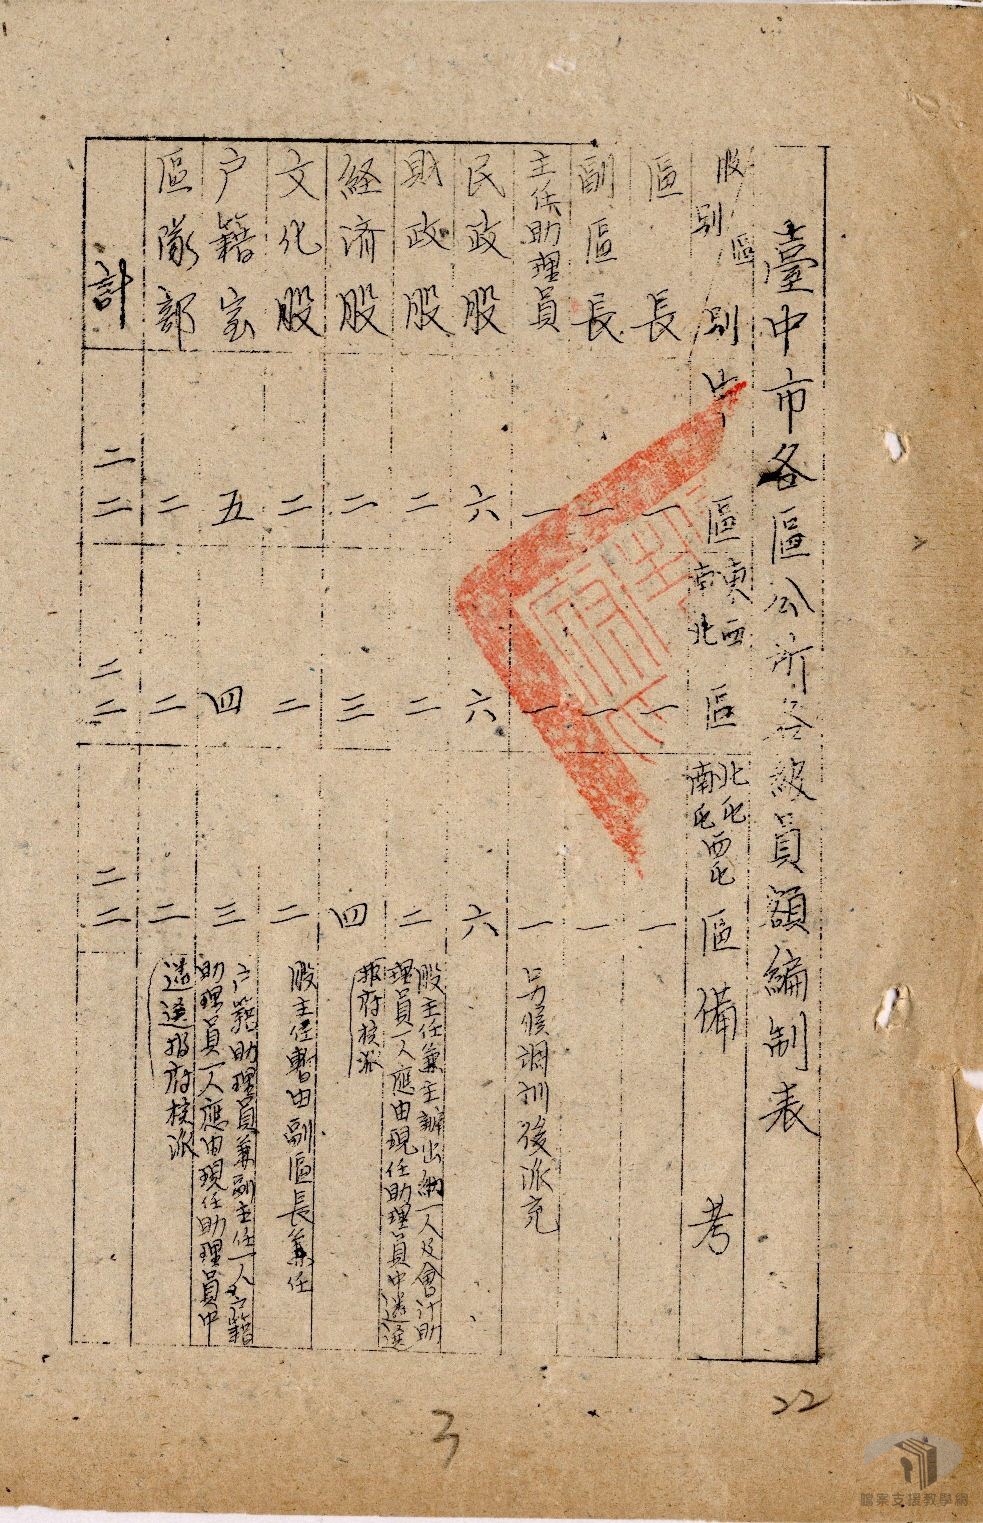 臺中市各區公所各級員額編制表
股別 區別 中區 東西南北區 北屯西屯南屯區 備考
區長 一 一 一
副區長 一 一 一
主任助理員 一 一 一 另候調訓後派充
民政股 六 六 六
財政股 二 二 二 股主任兼主辦出納一人及會計助
理員一人應由現任助理員中遴選
報府核派
経済股 二 三 四
文化股 二 二 二 股主任暫由副區長兼任
户籍室 五 四 三 户籍助理員兼副主任一人户籍
助理員一人應由現任助理員中
遴選报府核派
區隊部 二 二 二
計 二二 二二 二二
22
3
檔案支援教學網